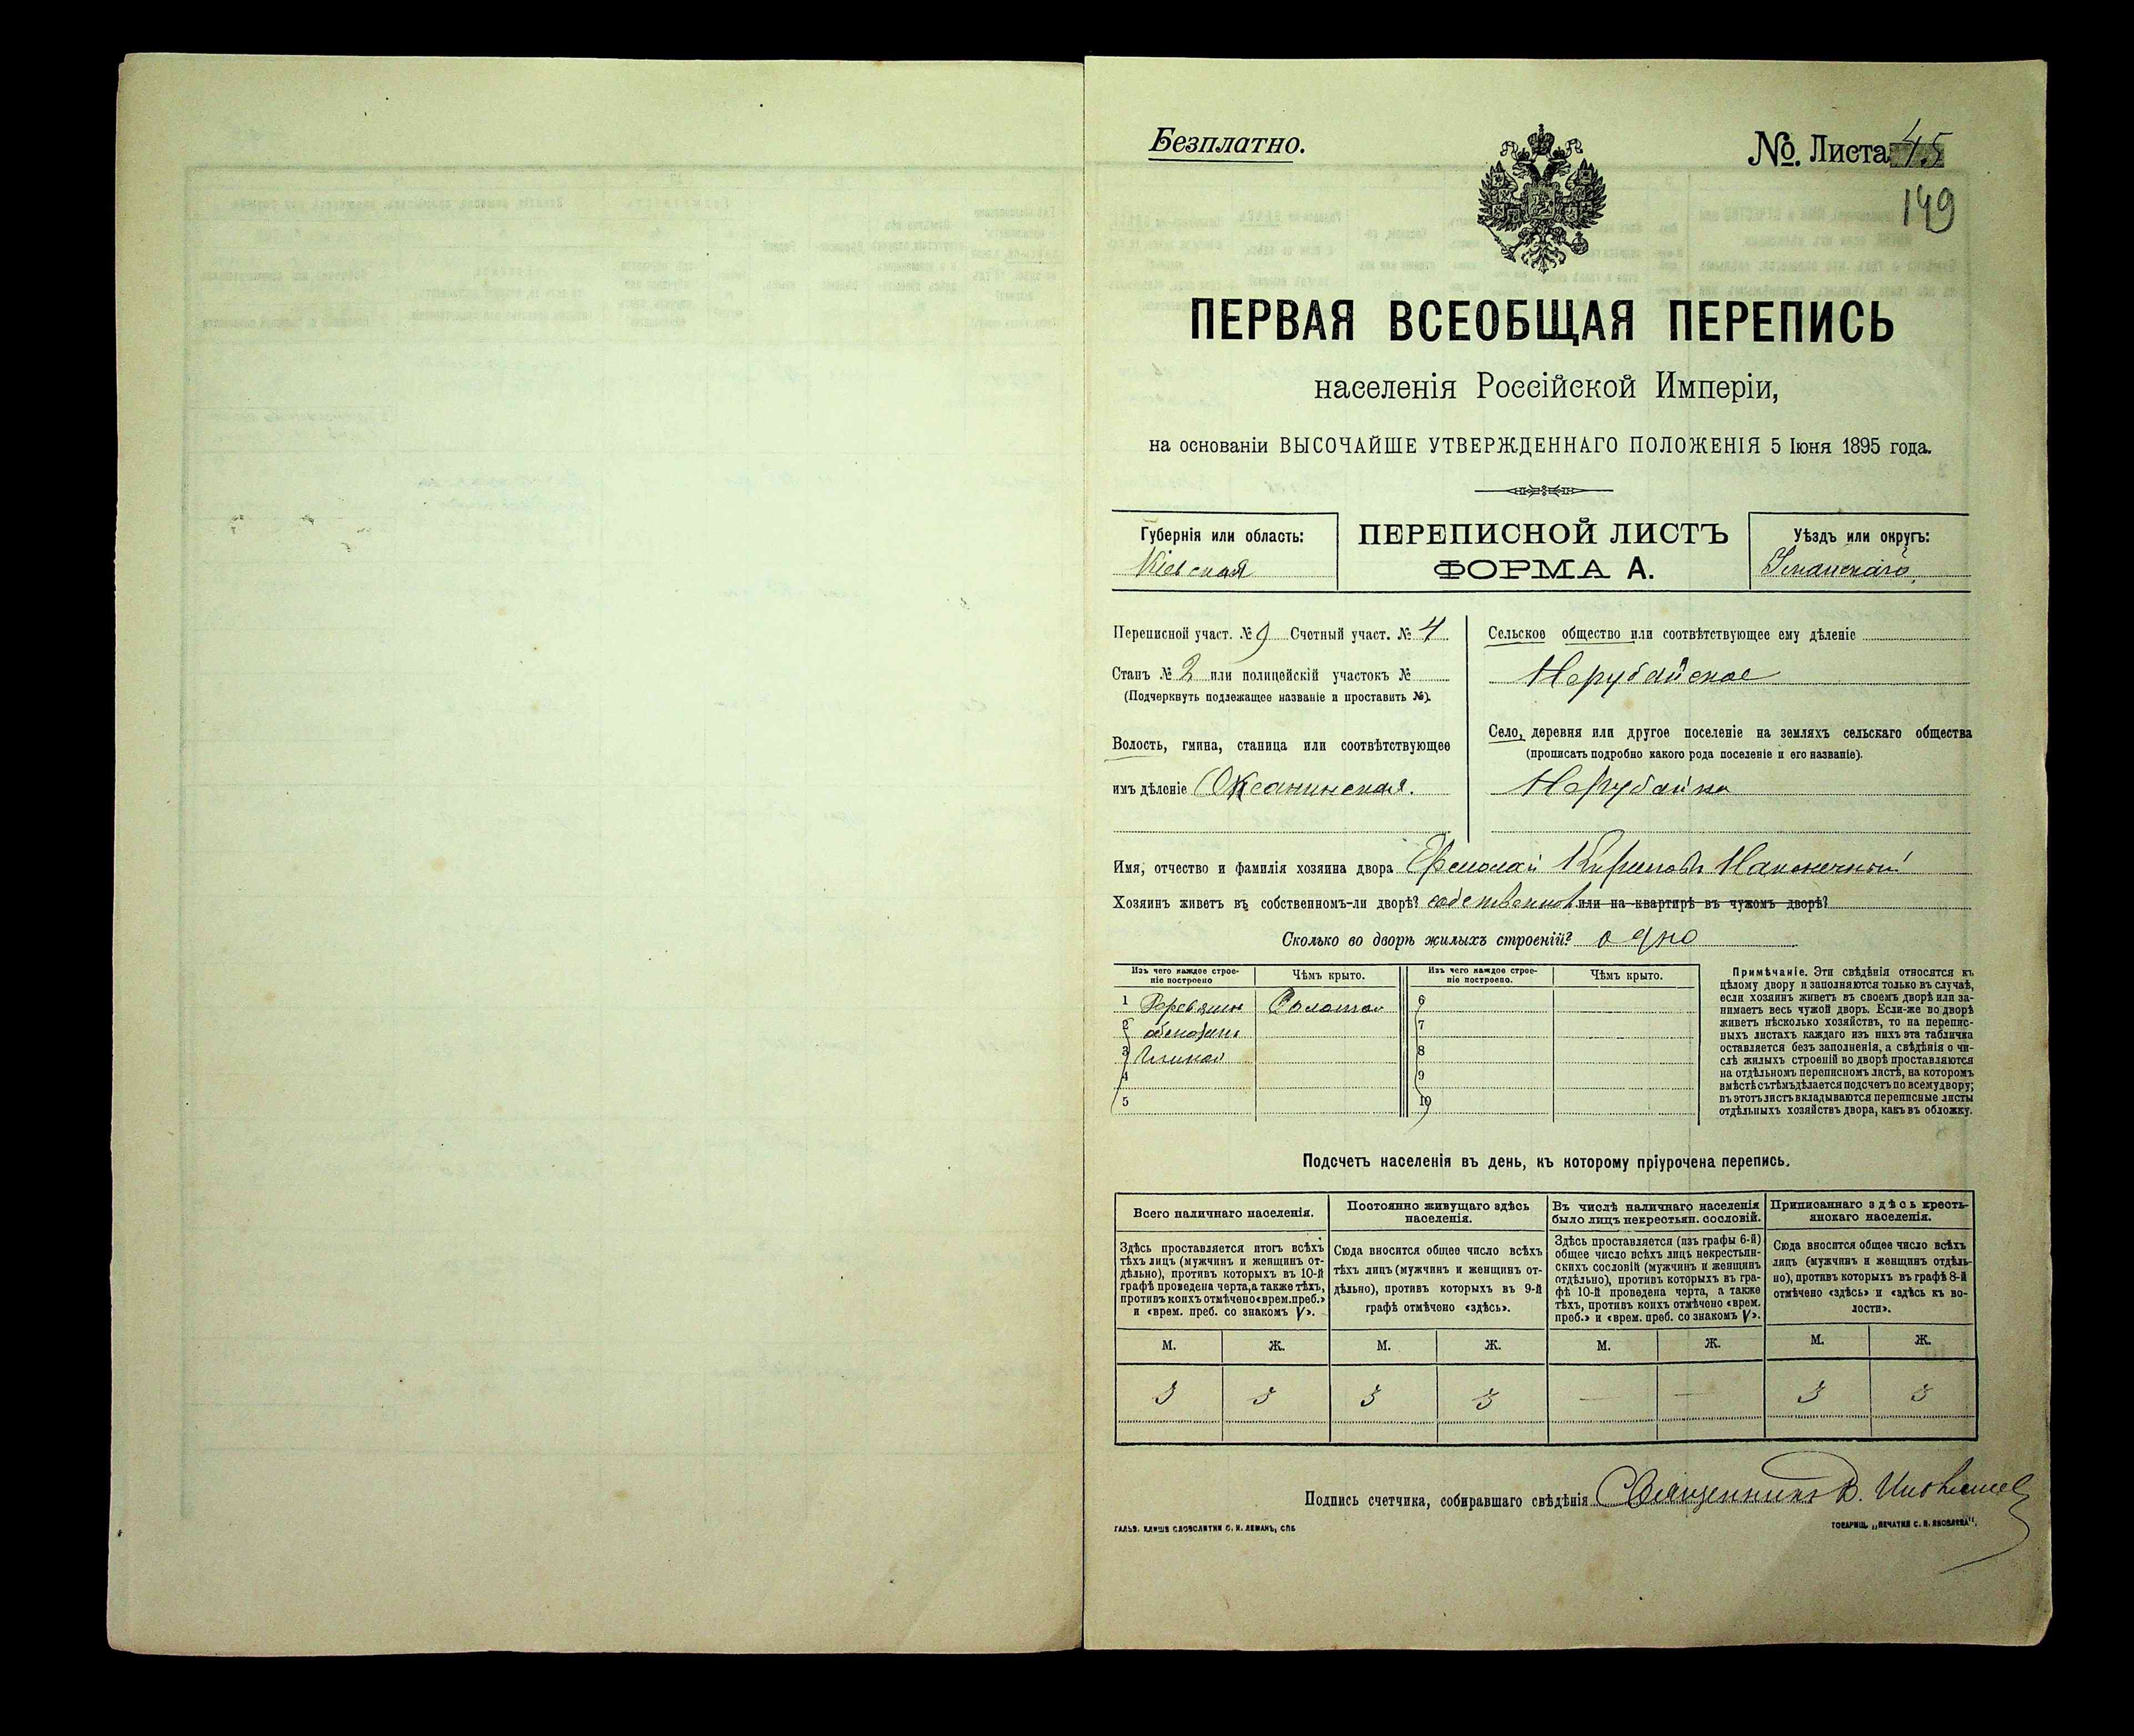 Безплатно.
№. Листа 45
149
ПЕРВАЯ ВСЕОБЩАЯ ПЕРЕПИСЬ
населенія Россійской Имперіи,
на основаніи ВЫСОЧАЙШЕ УТВЕРЖДЕННАГО ПОЛОЖЕНІЯ 5 Іюня 1895 года.
Губернія или область:
Кіевская
ПЕРЕПИСНОЙ ЛИСТЪ
ФОРМА А.
Уѣздъ или округъ:
Уманскаго
Переписной участ. № 9 Счетный участ. № 4
Станъ № 2 или полицейскій участокъ №
(Подчеркнуть подлежащее названіе и проставить №).
Волость, гмина, станица или соотвѣтствующее
имъ дѣленіе Оксанинская.
Сельское общество или соотвѣтствующее ему дѣленіе
Нерубайское
Село, деревня или другое поселеніе на земляхъ сельскаго общества
(прописать подробно какого рода поселеніе и его названіе).
Нерубайка
Имя, отчество и фамилія хозяина двора Ермолай Кириловъ Наконечный
Хозяинъ живетъ въ собственномъ-ли дворѣ? собственном или на квартирѣ въ чужомъ дворѣ?
Сколько во дворѣ жилыхъ строеній? одно
Изъ чего каждое строе-
ніе построено
Чѣмъ крыто.
Изъ чего каждое строе-
ніе построено.
Чѣмъ крыто.
1 Соломой 6
2 7
3 глиной 8
4 9
5 10
Примѣчаніе. Эти свѣдѣнія относятся къ
цѣлому двору и заполняются только въ случаѣ,
если хозяинъ живетъ въ своемъ дворѣ или за-
нимаетъ весь чужой дворъ. Если-же во дворѣ
живетъ нѣсколько хозяйствъ, то на перепис-
ныхъ листахъ каждаго изъ нихъ эта табличка
оставляется безъ заполненія, а свѣдѣнія о чи-
слѣ жилыхъ строеній во дворѣ проставляются
на отдѣльномъ переписномъ листѣ, на которомъ
вмѣстѣ съ тѣмъ дѣлается подсчетъ по всему двору;
въ этотъ листъ вкладываются переписные листы
отдѣльныхъ хозяйствъ двора, какъ въ обложку.
Подсчетъ населенія въ день, къ которому пріурочена перепись.
Всего наличнаго населенія.
Постоянно живущаго здѣсь
населенія.
Въ числѣ наличнаго населенія
было лицъ некрестьян. сословій.
Приписаннаго здѣсь кресть-
янскаго населенія.
Здѣсь проставляется итогъ всѣхъ
тѣхъ лицъ (мужчинъ и женщинъ от-
дѣльно), противъ которыхъ въ 10-й
графѣ проведена черта, а также тѣхъ,
противъ коихъ отмѣчено «врем. преб.»
и «врем. преб. со знакомъ V».
Сюда вносится общее число всѣхъ
тѣхъ лицъ (мужчинъ и женщинъ от-
дѣльно), противъ которыхъ въ 9-й
графѣ отмѣчено «здѣсь».
Здѣсь проставляется (изъ графы 6-й)
общее число всѣхъ лицъ некрестьян-
скихъ сословій (мужчинъ и женщинъ
отдѣльно), противъ которыхъ въ гра-
фѣ 10-й проведена черта, а также
тѣхъ, противъ коихъ отмѣчено «врем.
преб.» и «врем. преб. со знакомъ V».
Сюда вносится общее число всѣхъ
лицъ (мужчинъ и женщинъ отдѣль-
но), противъ которыхъ въ графѣ 8-й
отмѣчено «здѣсь» и «здѣсь къ во-
лости».
М. Ж. М. Ж. М. Ж. М. Ж.
3 3 3 3 — — 3 3
Подпись счетчика, собиравшаго свѣдѣнія Священникъ В.
ГАЛЬВ. КЛИШЕ СЛОВОЛИТНИ О. И. ЛЕМАНЪ, СПБ
ТОВАРИЩ. „ПЕЧАТНЯ С. П. ЯКОВЛЕВА".